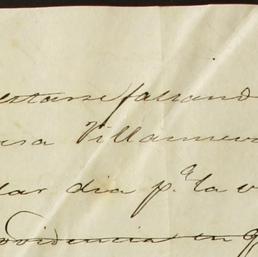 estarse falsand
sa Villanueva
dar dia p.ª la v
ovidencia en q